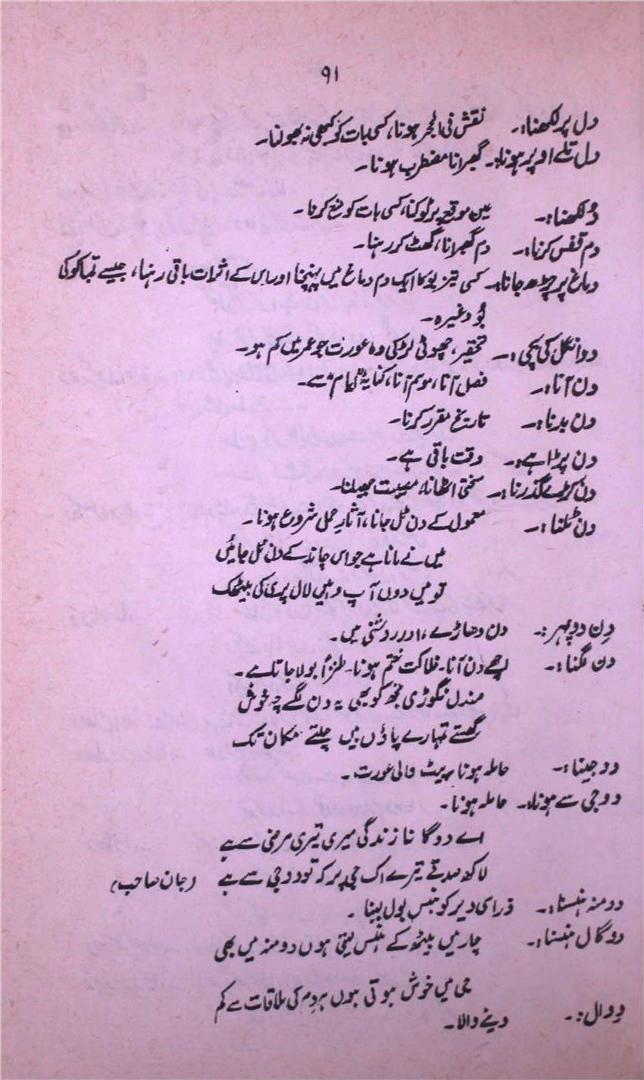 ۹۱
دل پر لکھنا:۔ نقش فی الحجر ہونا، کسی بات کو کبھی نہ بھولنا۔
دل تلے اوپر ہونا:۔ گھبرانا مضطرب ہونا۔
دُ لکھنا:۔ عین موقع پر ٹوکنا، کسی بات کو منع کرنا۔
دم قفس کرنا:۔ دم گھبرانا، گھٹ کر رہنا۔
دماغ پر چڑھ جانا:۔ کسی تیز بو کا ایک دم دماغ میں پہنچنا اور اس کے اثرات باقی رہنا، جیسے تمباکو کی
بُو وغیرہ۔
دو انگل کی بچی:۔ تحقیر، چھوٹی لڑکی وہ عورت جو عمر میں کم ہو۔
دن آنا:۔ فصل آنا، موسم آنا، کنایہ ایام سے۔
دن بدنا:۔ تاریخ مقرر کرنا۔
دن پڑا ہے:۔ وقت باقی ہے۔
دن کڑے گذرنا:۔ سختی اٹھانا، مصیبت جھیلنا۔
دن ٹلنا:۔ معمول کے دن ٹل جانا، آثارِ حمل شروع ہونا۔
میں نے مانا ہے جو اس چاند کے دن ٹل جائیں
تو میں دوں آپ وہیں لال پری کی بیٹھک
دِن دوپہر:۔ دن دھاڑے، روشنی میں۔
دن لگنا:۔ اچھے دن آنا۔ فلاکت ختم ہونا۔ طنزاً بولا جاتا ہے۔
صندل نگوڑی تجھ کو بھی یہ دن لگے چہ خوش
گھستے تمہارے پاؤں میں چلتے مکان تک
دوجینا:۔ حاملہ ہونا، پیٹ والی عورت۔
دوجی سے ہونا:۔ حاملہ ہونا۔
اے دوگانا زندگی میری تیری مرضی سے ہے
لاکھ صدقے تیرے اک جی پر کہ تو دوجی سے ہے (جان صاحب)
دو منہ ہنسنا:۔ ذرا سی دیر کو ہنس بول لینا۔
دو گال ہنسنا:۔ چار میں بیٹھ کے ہنس لیتی ہوں دو منہ میں بھی
جی میں خوش ہوتی ہوں ہر دم کی ملاقات سے کم
دِوال:۔ دینے والا۔